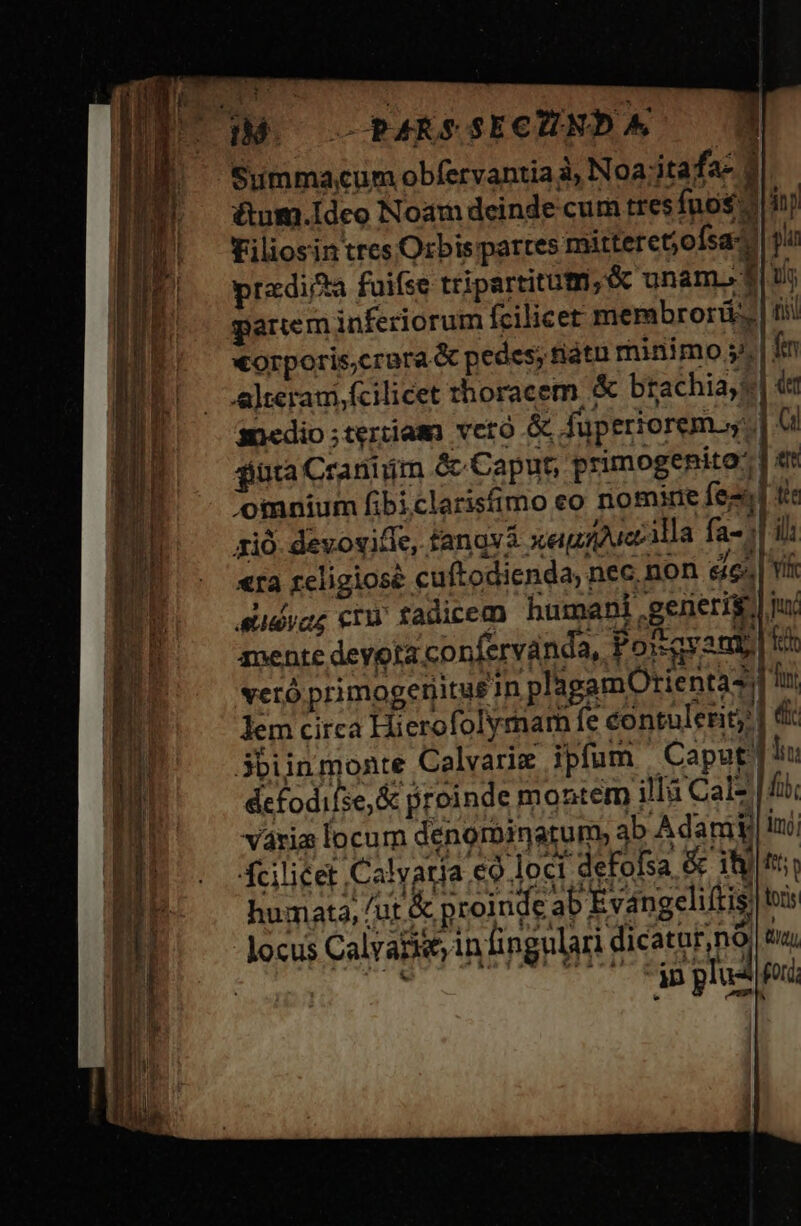 PARS SECUNDA
Summa cum obſervantia à, Noa ita fa-
ctum. Ideo Noam deinde cum tres ſuos
Filios in tres Orbis partes mitteret, oſsa
prædicta fuiſse tripartitum, & unam
partem inferiorum ſcilicet membrorũ
corporis, crura & pedes, natu minimo,
alteram, ſcilicet thoracem & brachia,
medio; tertiam verò & ſuperiorem,
puta Cranium & Caput, primogenito
omnium ſibi clarisſimo eo nomine ſe-
riò devoviſſe, tanqvã κειμήλια illa ſa-
cra religiosè cuſtodienda, nec non
crũ radicem humani generis
mente devota conſervanda,
verò primogenitus in plagam Orienta-
lem circa Hieroſolymam ſe contulerit,
ibi in monte Calvariæ ipſum Caput
defodiſse, & proinde montem illũ Cal-
variæ locum denominatum, ab Adami
ſcilicet Calvaria eò loci defoſsa & ibi
humata, ut & proinde ab Evangeliſtis
locus Calvariæ, in ſingulari dicatur, nõ
in plu-